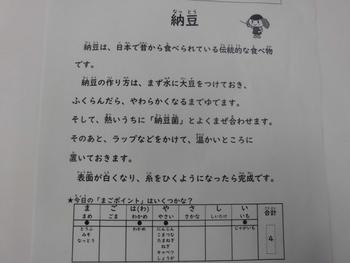 なっとう
納豆
納豆は、日本で昔から食べられている伝統的な食べ物
です。
納豆の作り方は、まず水に大豆をつけておき、
ふくらんだら、やわらかくなるまでゆでます。
そして、熱いうちに「納豆菌」とよくまぜ合わせます。
そのあと、ラップなどをかけて、温かいところに
置いておきます。
表面が白くなり、糸をひくようになったら完成です。
★今日の「まごポイント」はいくつかな?
ま ご は(わ) や さ し い 合計
まめ ごま わかめ やさい さかな しいたけ いも
● ● ● ● 4
とうふ わかめ にんじん じゃがいも
みそ こまつな
なっとう たまねぎ
ねぎ
キャベツ
しょうが